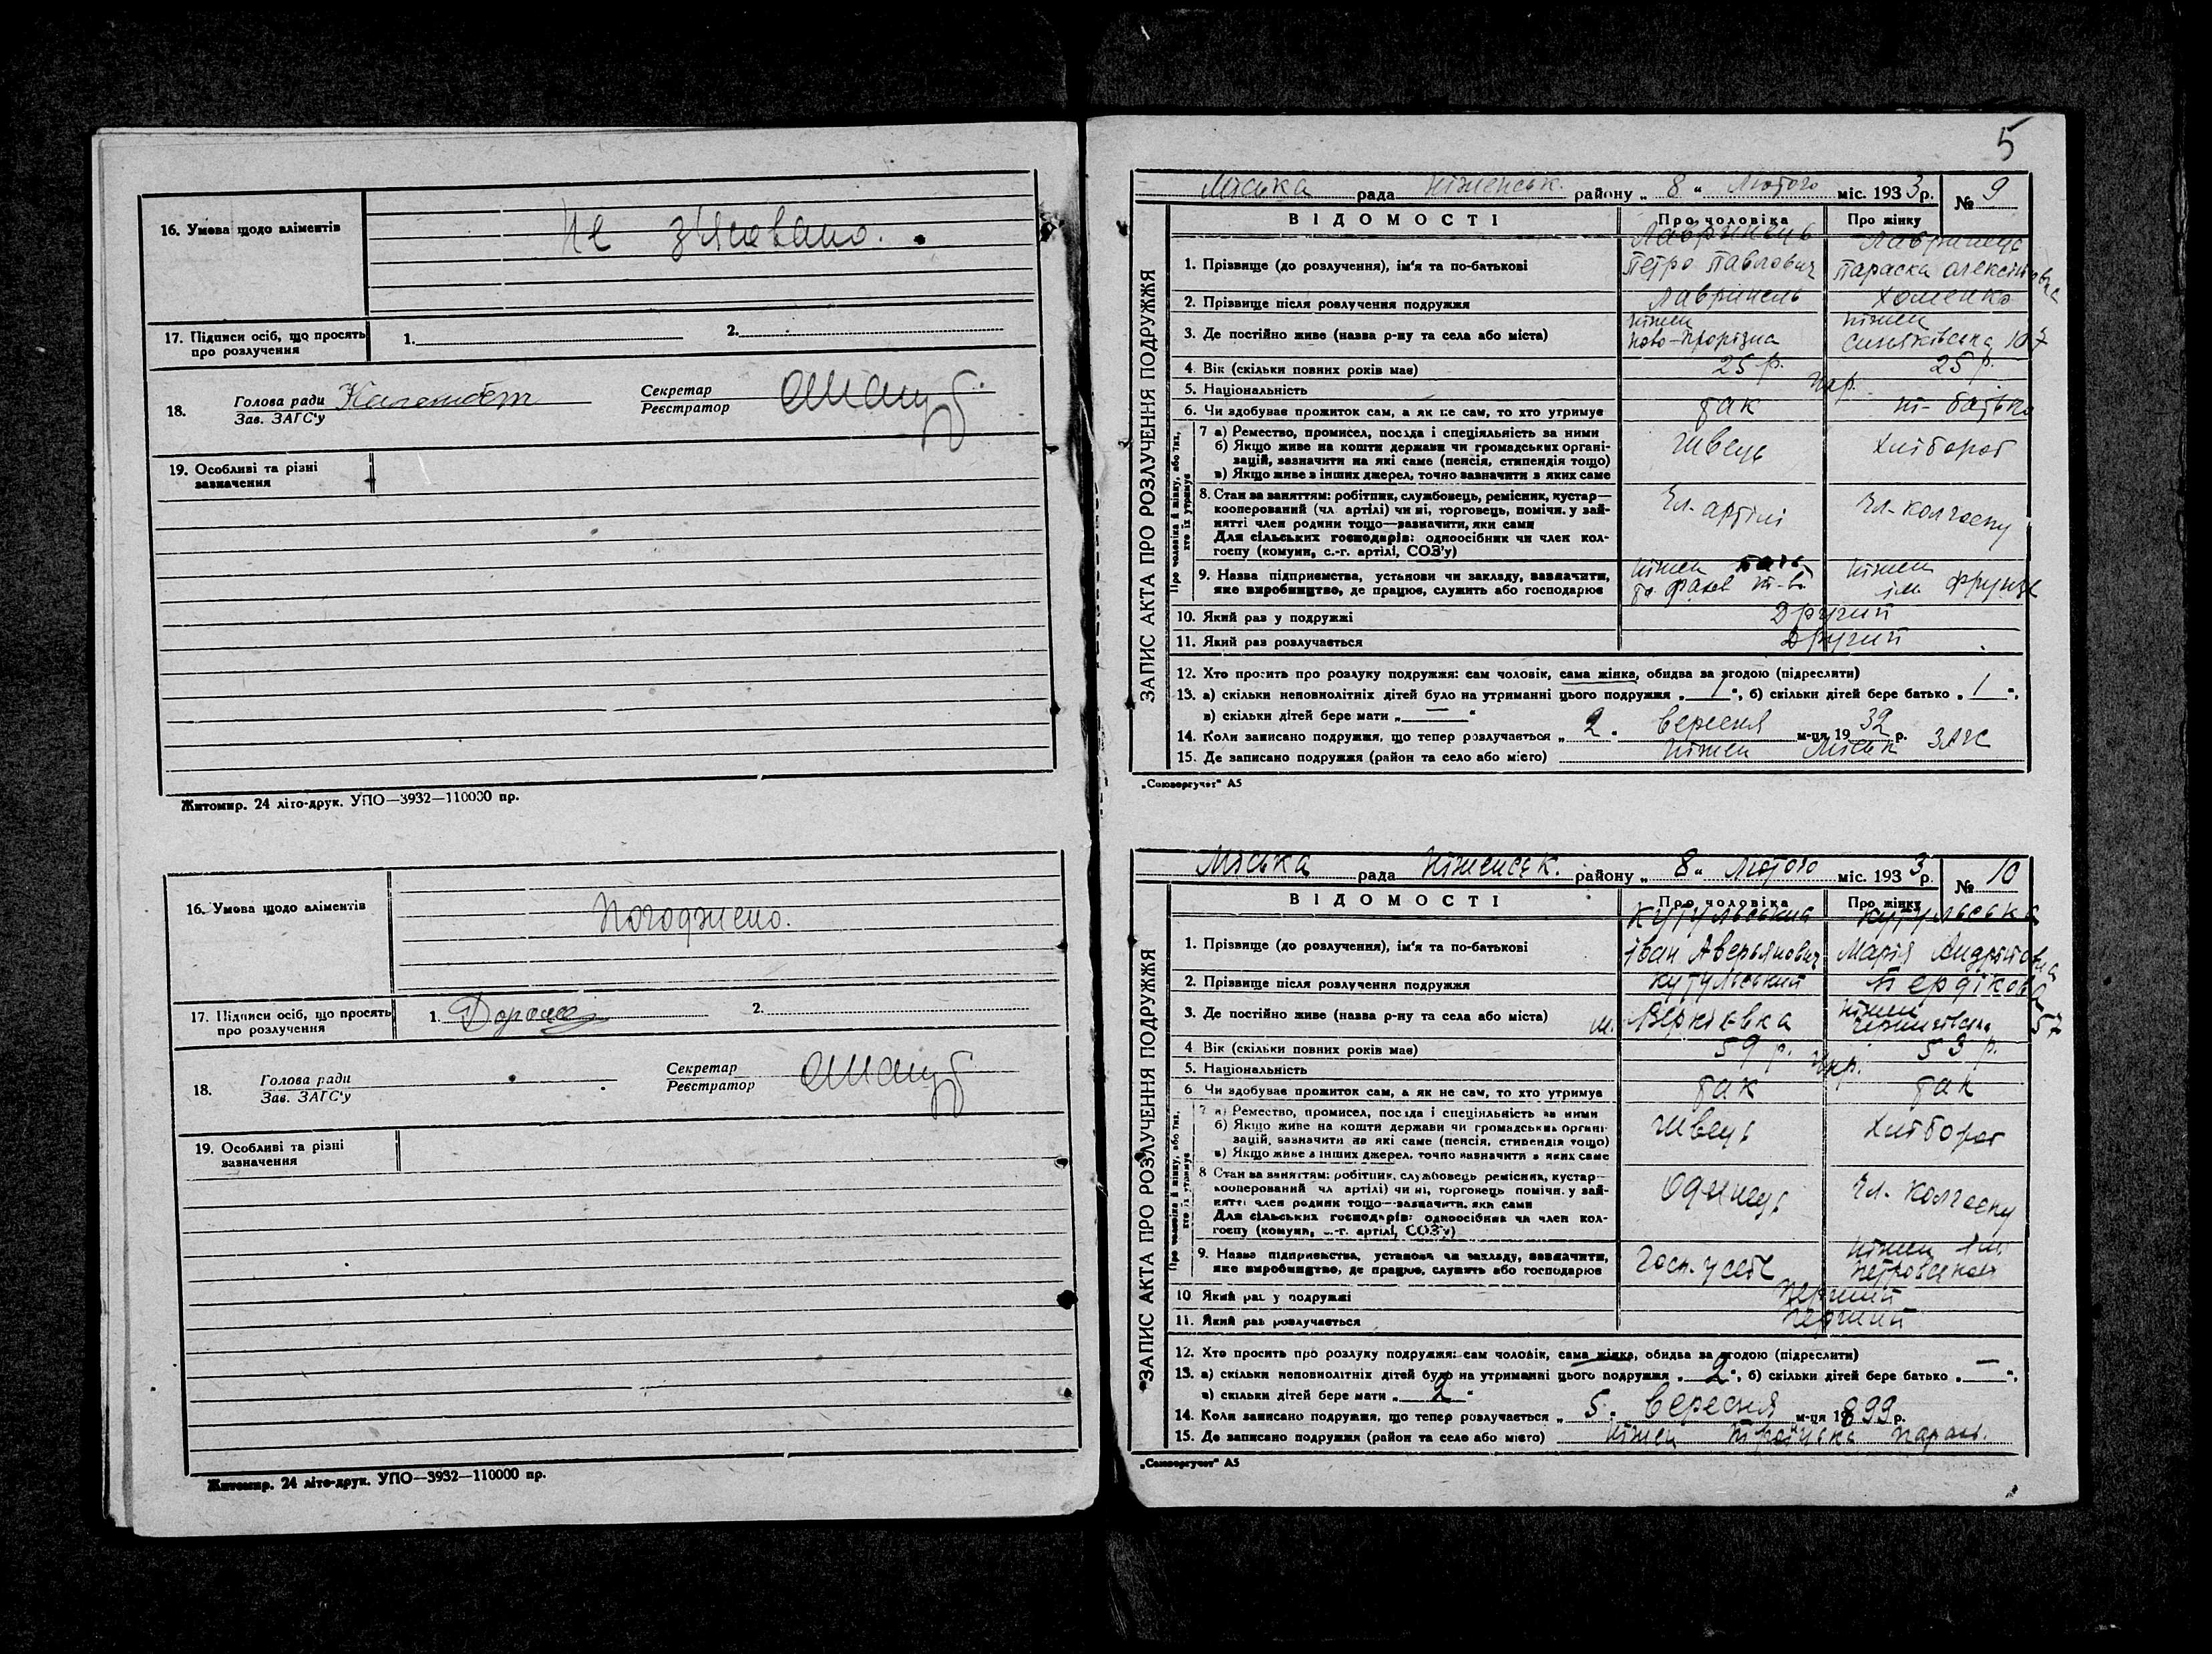 16. Умова щодо аліментів
Не з'ясовано.
17. Підписи осіб, що просять
про розлучення
1. 2.
18. Голова ради
Зав. ЗАГС'у
Секретар
Реєстратор
19. Особливі та різні
зазначення
Житомир. 24 літо-друк. УПО—3932—110000 пр.
16. Умова щодо аліментів
Погоджено.
17. Підписи осіб, що просять
про розлучення
1. 2.
18. Голова ради
Зав. ЗАГС'у
Секретар
Реєстратор
19. Особливі та різні
зазначення
Житомир. 24 літо-друк. УПО—3932—110000 пр.
5
ЗАПИС АКТА ПРО РОЗЛУЧЕННЯ ПОДРУЖЖЯ
Міська рада Ніженськ. району „ 8 " Лютого міс. 1933 р. № 9
ВІДОМОСТІ Про чоловіка Про жінку
1. Прізвище (до розлучення), ім'я та по-батькові Лавринець Петро Павлович Лавринець Параска Олексіївна
2. Прізвище після розлучення подружжя Лавринець Хоменко
3. Де постійно живе (назва р-ну та села або міста) Ніжен Ново-Прорізна Ніжен Синяківська 107
4. Вік (скільки повних років має) 25 р. 25 р.
5. Національність Укр.
6. Чи здобуває прожиток сам, а як не сам, то хто утримує так батько
Про чоловіка й жінку, або тих, хто їх утримує
7 а) Ремество, промисел, посада і спеціяльність за ними
б) Якщо живе на кошти держави чи громадських органі-
зацій, зазначити на які саме (пенсія, стипендія тощо)
в) Якщо живе з інших джерел, точно зазначити з яких саме
Швець Хлібороб
8. Стан за заняттям: робітник, службовець, ремісник, кустар—
кооперований (чл. артілі) чи ні, торговець, помічн. у зай-
нятті член родини тощо—зазначити, яки сами
Для сільських господарів: одноосібник чи член кол-
госпу (комуни, с.-г. артілі, СОЗ'у)
Чл. артілі Чл. колгоспу
9. Назва підприємства, установи чи закладу, зазначити,
яке виробництво, де працює, служить або господарює
Ніжен Ніжен ім Фрунзе
10. Який раз у подружжі Другий
11. Який раз розлучається Другий
12. Хто просить про розлуку подружжя: сам чоловік, сама жінка, обидва за згодою (підреслити)
13. а) скільки неповнолітніх дітей було на утриманні цього подружжя „ 1 ", б) скільки дітей бере батько „ 1 ".
в) скільки дітей бере мати „ — "
14. Коли записано подружжя, що тепер розлучається „ 2 " вересня м-ця 1932 р.
15. Де записано подружжя (район та село або місто) Ніжен Міськ ЗАГС
„Союзоргучет" А5
ЗАПИС АКТА ПРО РОЗЛУЧЕННЯ ПОДРУЖЖЯ
Міська рада Ніженськ. району „ 8 " Лютого міс. 1933 р. № 10
ВІДОМОСТІ Про чоловіка Про жінку
1. Прізвище (до розлучення), ім'я та по-батькові Кутульський Іван Аверьянович Кутульська Марія Андріївна
2. Прізвище після розлучення подружжя Кутульський Пердікова
3. Де постійно живе (назва р-ну та села або міста) м. Веркіевка Ніжен 57
4 Вік (скільки повних років має) 59 р. 53 р.
5. Національність Укр.
6 Чи здобуває прожиток сам, а як не сам, то хто утримує так так
Про чоловіка й жінку, або тих, хто їх утримує
7 а) Ремество, промисел, посада і спеціяльність за ними
б) Якщо живе на кошти держави чи громадських органі-
зацій, зазначити на які саме (пенсія, стипендія тощо)
в) Якщо живе з інших джерел, точно зазначити з яких саме
Швець Хлібороб
8 Стан за заняттям: робітник, службовець ремісник, кустар—
кооперований чл артілі) чи ні, торговець помічн. у зай-
нятті член родини тощо—зазначити, яки сами
Для сільських господарів: одноосібник чи член кол-
госпу (комуни, с.-г. артілі, СОЗ'у)
Одинець Чл. колгоспу
9. Назва підприємства, установи чи закладу, зазначити,
яке виробництво, де працює, служить або господарює
Госп. у себе Ніжен ім Петровського
10 Який раз у подружжі Перший
11. Який раз розлучається Перший
12. Хто просить про розлуку подружжя: сам чоловік, сама жінка, обидва за згодою (підреслити)
13. а) скільки неповнолітніх дітей було на утриманні цього подружжя „ 2 ", б) скільки дітей бере батько „ — ",
в) скільки дітей бере мати „ 2 "
14. Коли записано подружжя, що тепер розлучається „ 5 " вересня м-ця 1899 р.
15. Де записано подружжя (район та село або місто) Ніжен Троїцька параф.
„Союзоргучет" А5